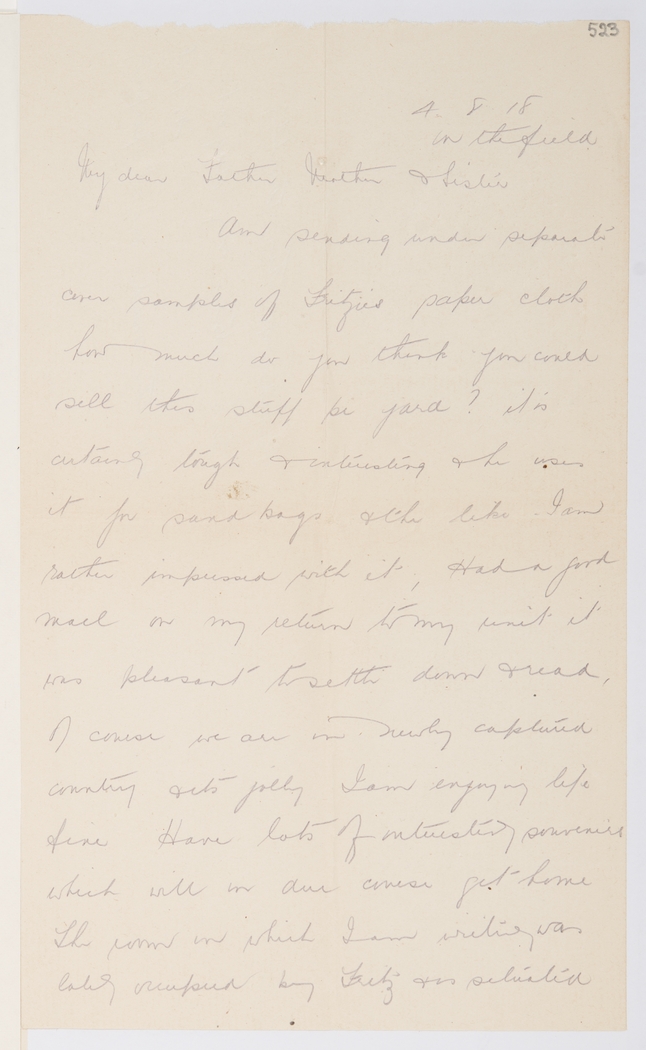 523
4. 8 18
in the field
My dear Father Mother & Sister
Am sending under separate
cover samples of Fritzies paper cloth
how much do you think you could
sell this stuff pe yard? it is
certainly tough & interesting & he uses
it for sand bags & the like. I am
rather impressed with it, Had a good
mail on my return to my unit it
was pleasant to settle down & read,
Of course we are in newly captured
country & its jolly I am enjoying life
fine Have lots of interesting souvenirs
which will in due course get home
The room in which I am writing was
lately occupied by Fritz & is situated